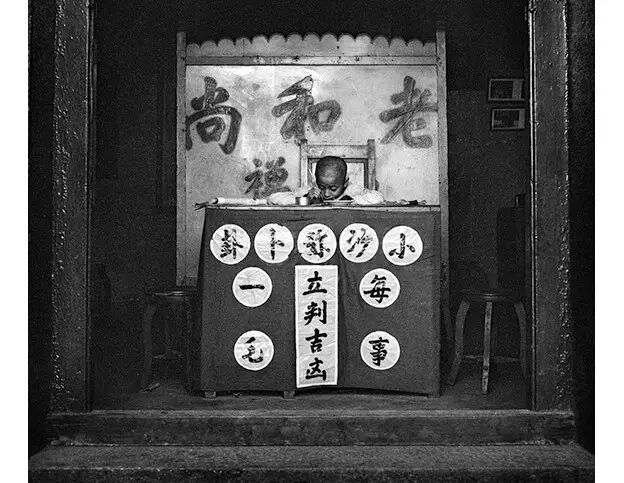 老和尚
禅
小沙弥卜卦
每事
立判吉凶
一毛